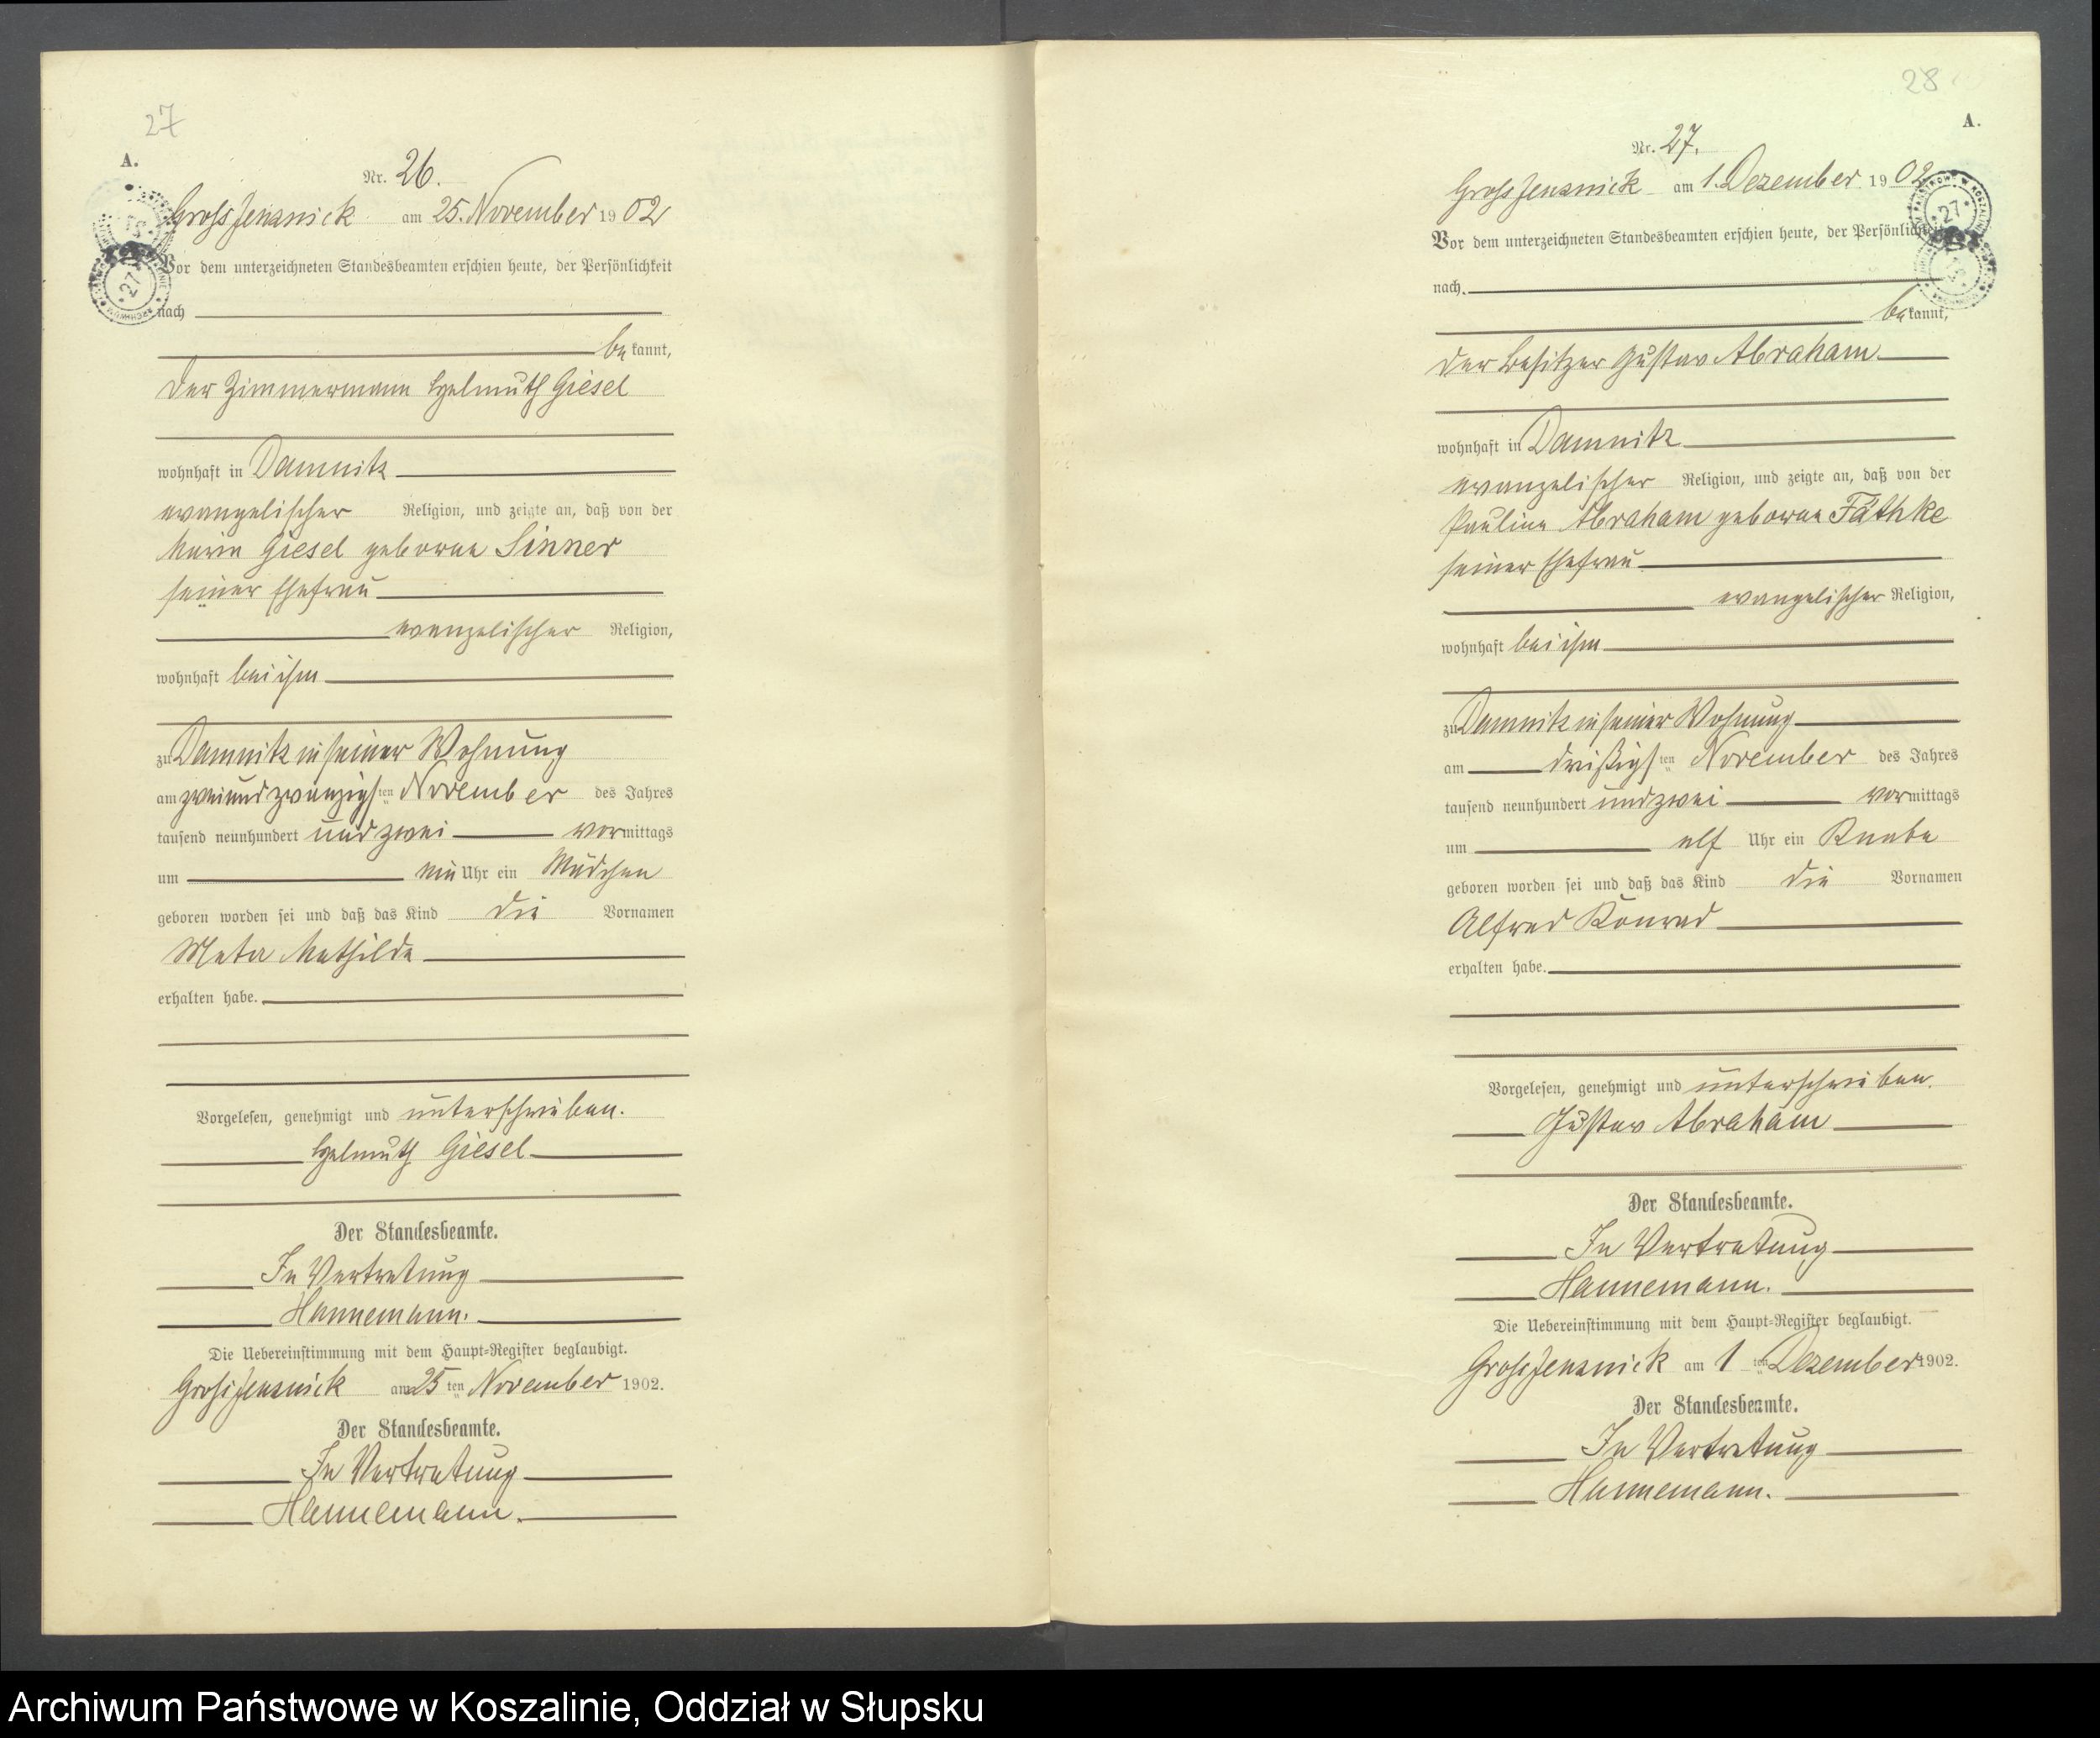 27
A.
Nr. 26.
Gross Jenznick am 25. November 1902
Vor dem unterzeichneten Standesbeamten erschien heute, der Persönlichkeit
nach
bekannt,
der Zimmermann Helmuth Giesel
wohnhaft in Damnitz
evangelischer Religion, und zeigte an, daß von der
Maria Giesel geborne Sinner
seiner Ehefrau
evangelischer Religion,
wohnhaft bei ihm
zu Damnitz in seiner Wohnung
am zweiundzwanzigsten November des Jahres
tausend neunhundert und zwei vormittags
um ein Uhr ein Mädchen
geboren worden sei und daß das Kind die Vornamen
Meta Mathilde
erhalten habe.
Vorgelesen, genehmigt und unterschrieben.
Helmuth Giesel
Der Standesbeamte.
In Vertretung
Hannemann.
Die Uebereinstimmung mit dem Haupt-Register beglaubigt.
Gross Jenznick am 25ten November 1902.
Der Standesbeamte.
In Vertretung
Hannemann.
28
A.
Nr. 27.
Gross Jenznick am 1. Dezember 1902
Vor dem unterzeichneten Standesbeamten erschien heute, der Persönlichkeit
nach
bekannt,
der Besitzer Gustav Abraham
wohnhaft in Damnitz
evangelischer Religion, und zeigte an, daß von der
Pauline Abraham geborne Fäthke
seiner Ehefrau
evangelischer Religion,
wohnhaft bei ihm
zu Damnitz in seiner Wohnung
am dreißigsten November des Jahres
tausend neunhundert und zwei vormittags
um elf Uhr ein Knabe
geboren worden sei und daß das Kind die Vornamen
Alfred Konrad
erhalten habe.
Vorgelesen, genehmigt und unterschrieben.
Gustav Abraham
Der Standesbeamte.
In Vertretung
Hannemann.
Die Uebereinstimmung mit dem Haupt-Register beglaubigt.
Gross Jenznick am 1ten Dezember 1902.
Der Standesbeamte.
In Vertretung
Hannemann.
Archiwum Państwowe w Koszalinie, Oddział w Słupsku